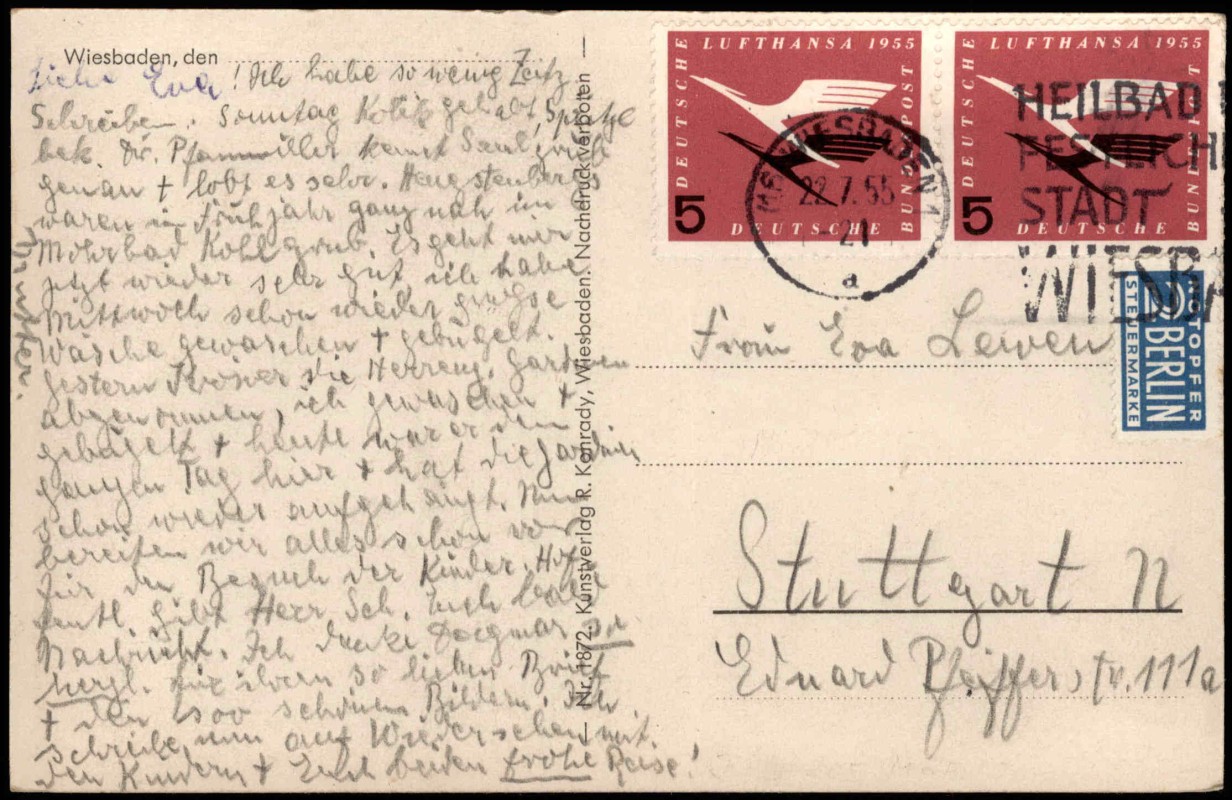 Wiesbaden, den
Liebe Eva! Ich habe so wenig Zeit z.
Schreiben. Sonntag Kolik gehabt, Spritze
bek. Dr. Pfannmüller kennt Saulgrub
genau + lobt es sehr. Hengstenbergs
waren im Frühjahr ganz nah im
Mohrbad Kohlgrub. Es geht mir
jetzt wieder sehr gut ich habe
Mittwoch schon wieder große
Wäsche gewaschen + gebügelt.
Gestern die Herrenz. Gardinen
abgenommen, ich gewaschen +
gebügelt + heute war er den
ganzen Tag hier + hat die Gardinen
schon wieder aufgehängt. Nun
bereiten wir alles schon vor
für den Besuch der Kinder. Hof-
fentl. gibt Herr Sch. Euch bald
Nachricht. Ich danke Dagmar so
herzl. für ihren so lieben Brief
+ den soo schönen Bildern. Ich
schreibe nun auf Wiedersehen mit
den Kindern + Euch beiden frohe Reise!
Mutter.
— Nr. 1872. Kunstverlag R. Konrady, Wiesbaden. Nachdruck verboten —
LUFTHANSA 1955
DEUTSCHE
BUNDESPOST
5
DEUTSCHE
LUFTHANSA 1955
DEUTSCHE
BUNDESPOST
5
DEUTSCHE
WIESBADEN 1
22.7.55
21
a
HEILBAD
FESTLICHE
STADT
WIESBA
NOTOPFER
2 BERLIN
STEUERMARKE
Frau Eva Lewen
Stuttgart N
Eduard Pfeifferstr. 111a